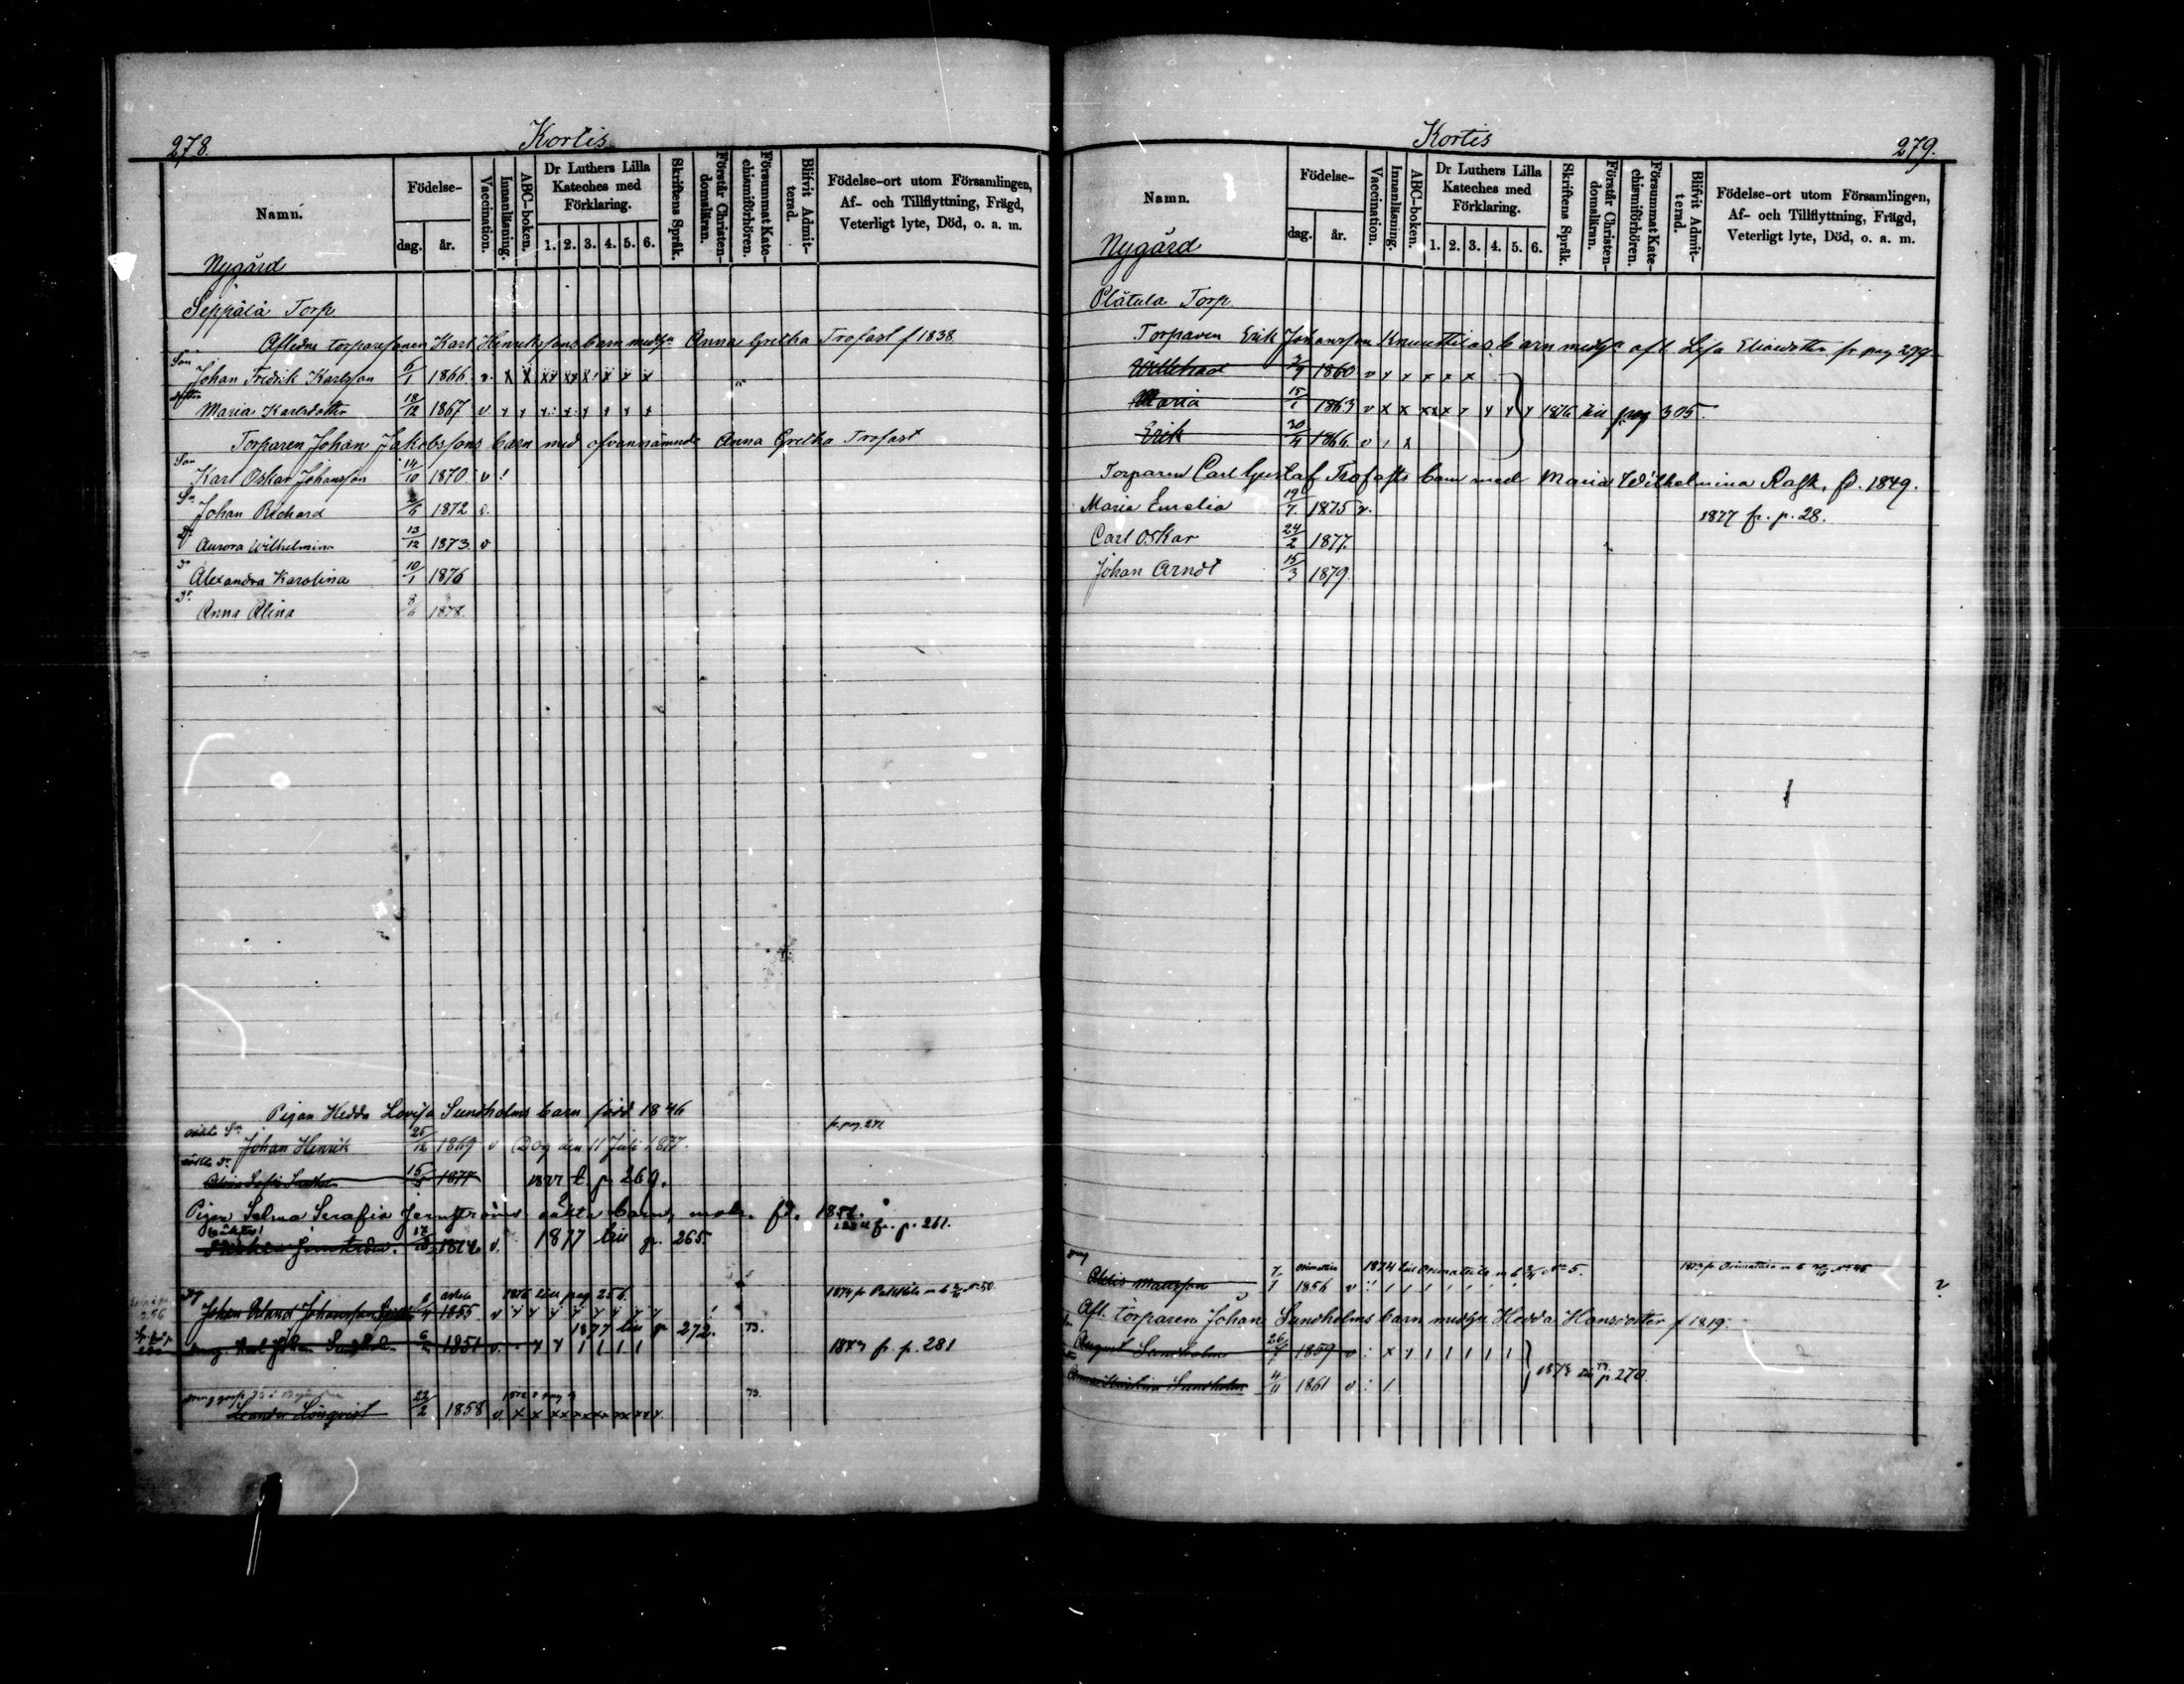 278.
Kortis
Namn.
Födelse-
dag.
år.
Vaccination.
Innanläsning.
ABC-boken.
Dr Luthers Lilla
Kateches med
Förklaring.
1. 2. 3. 4. 5. 6.
Skriftens Språk.
Förstår Christen-
domsläran.
Försummat Kate-
chismiförhören.
Blifvit Admit-
terad.
Födelse-ort utom Församlingen,
Af- och Tillflyttning, Frägd,
Veterligt lyte, Död, o. a. m.
Nygård
Seppälä Torp
Afledne torparesonen Karl Henrikssons barn med Anna Gretha Trofast f 1838
Son
Johan Fredrik Karlsson 6/1 1866 v. x x xx xx x x x x
Maria Karlsdotter 18/12 1867 v x x x x x x x x
Torparen Johan Jakobssons barn med ofvannämnde Anna Gretha Trofast
Son
Karl Oskar Johansson 14/10 1870 v
Sn
Johan Richard 1872 v.
Dr
Aurora Wilhelmina 13/12 1873 v
Dr
Alexandra Karolina 10/1 1876
Dr
Anna Alina 1878.
Pigan Hedda Lovisa Sundholms barn född 1846
Johan Henrik 25/12 1869 v Dog den 11 Juli 1877.
15 1877 t. p. 269.
Pigan Selma Serafia Jernströms oäkta barn, fd.
1877 till p. 265. fr. p. 261.
1876 till pag 256.
Johan Johansson 1855 v
1877 till p 272. 73.
Karl Johan 1851 v. fr p. 281
73.
Leander Lönqvist 22/2 1858 v x x xx xx xx xx xx
Kortis
279.
Namn.
Födelse-
dag.
år.
Vaccination.
Innanläsning.
ABC-boken.
Dr Luthers Lilla
Kateches med
Förklaring.
1. 2. 3. 4. 5. 6.
Skriftens Språk.
Förstår Christen-
domsläran.
Försummat Kate-
chismiförhören.
Blifvit Admit-
terad.
Födelse-ort utom Församlingen,
Af- och Tillflyttning, Frägd,
Veterligt lyte, Död, o. a. m.
Nygård
Plåtula Torp
Torparen Erik Johansson Knuuttilas barn med afl. Lisa Eliedotter fr pag 299
1860 v x x x x x
Maria 15/1 1863 v x x xx x x x x x 1876 till pag 305.
Erik 30/4 1866 v
Torparen Carl Gustaf Trofasts barn med Maria Wilhelmina Rask, fd. 1849.
Maria Emelia 19/7 1875 v. 1877 fr. p. 28.
Carl Oskar 24/2 1877.
Johan Arndt 15/3 1879.
1874 till Orimattila
Mattsson 7/1 1856 v
Afl. torparen Johan Sundholms barn med Hedda Hansdotter f 1819.
August Sundholm 26 1859 v
Sundholm 4/11 1861 v p. 270